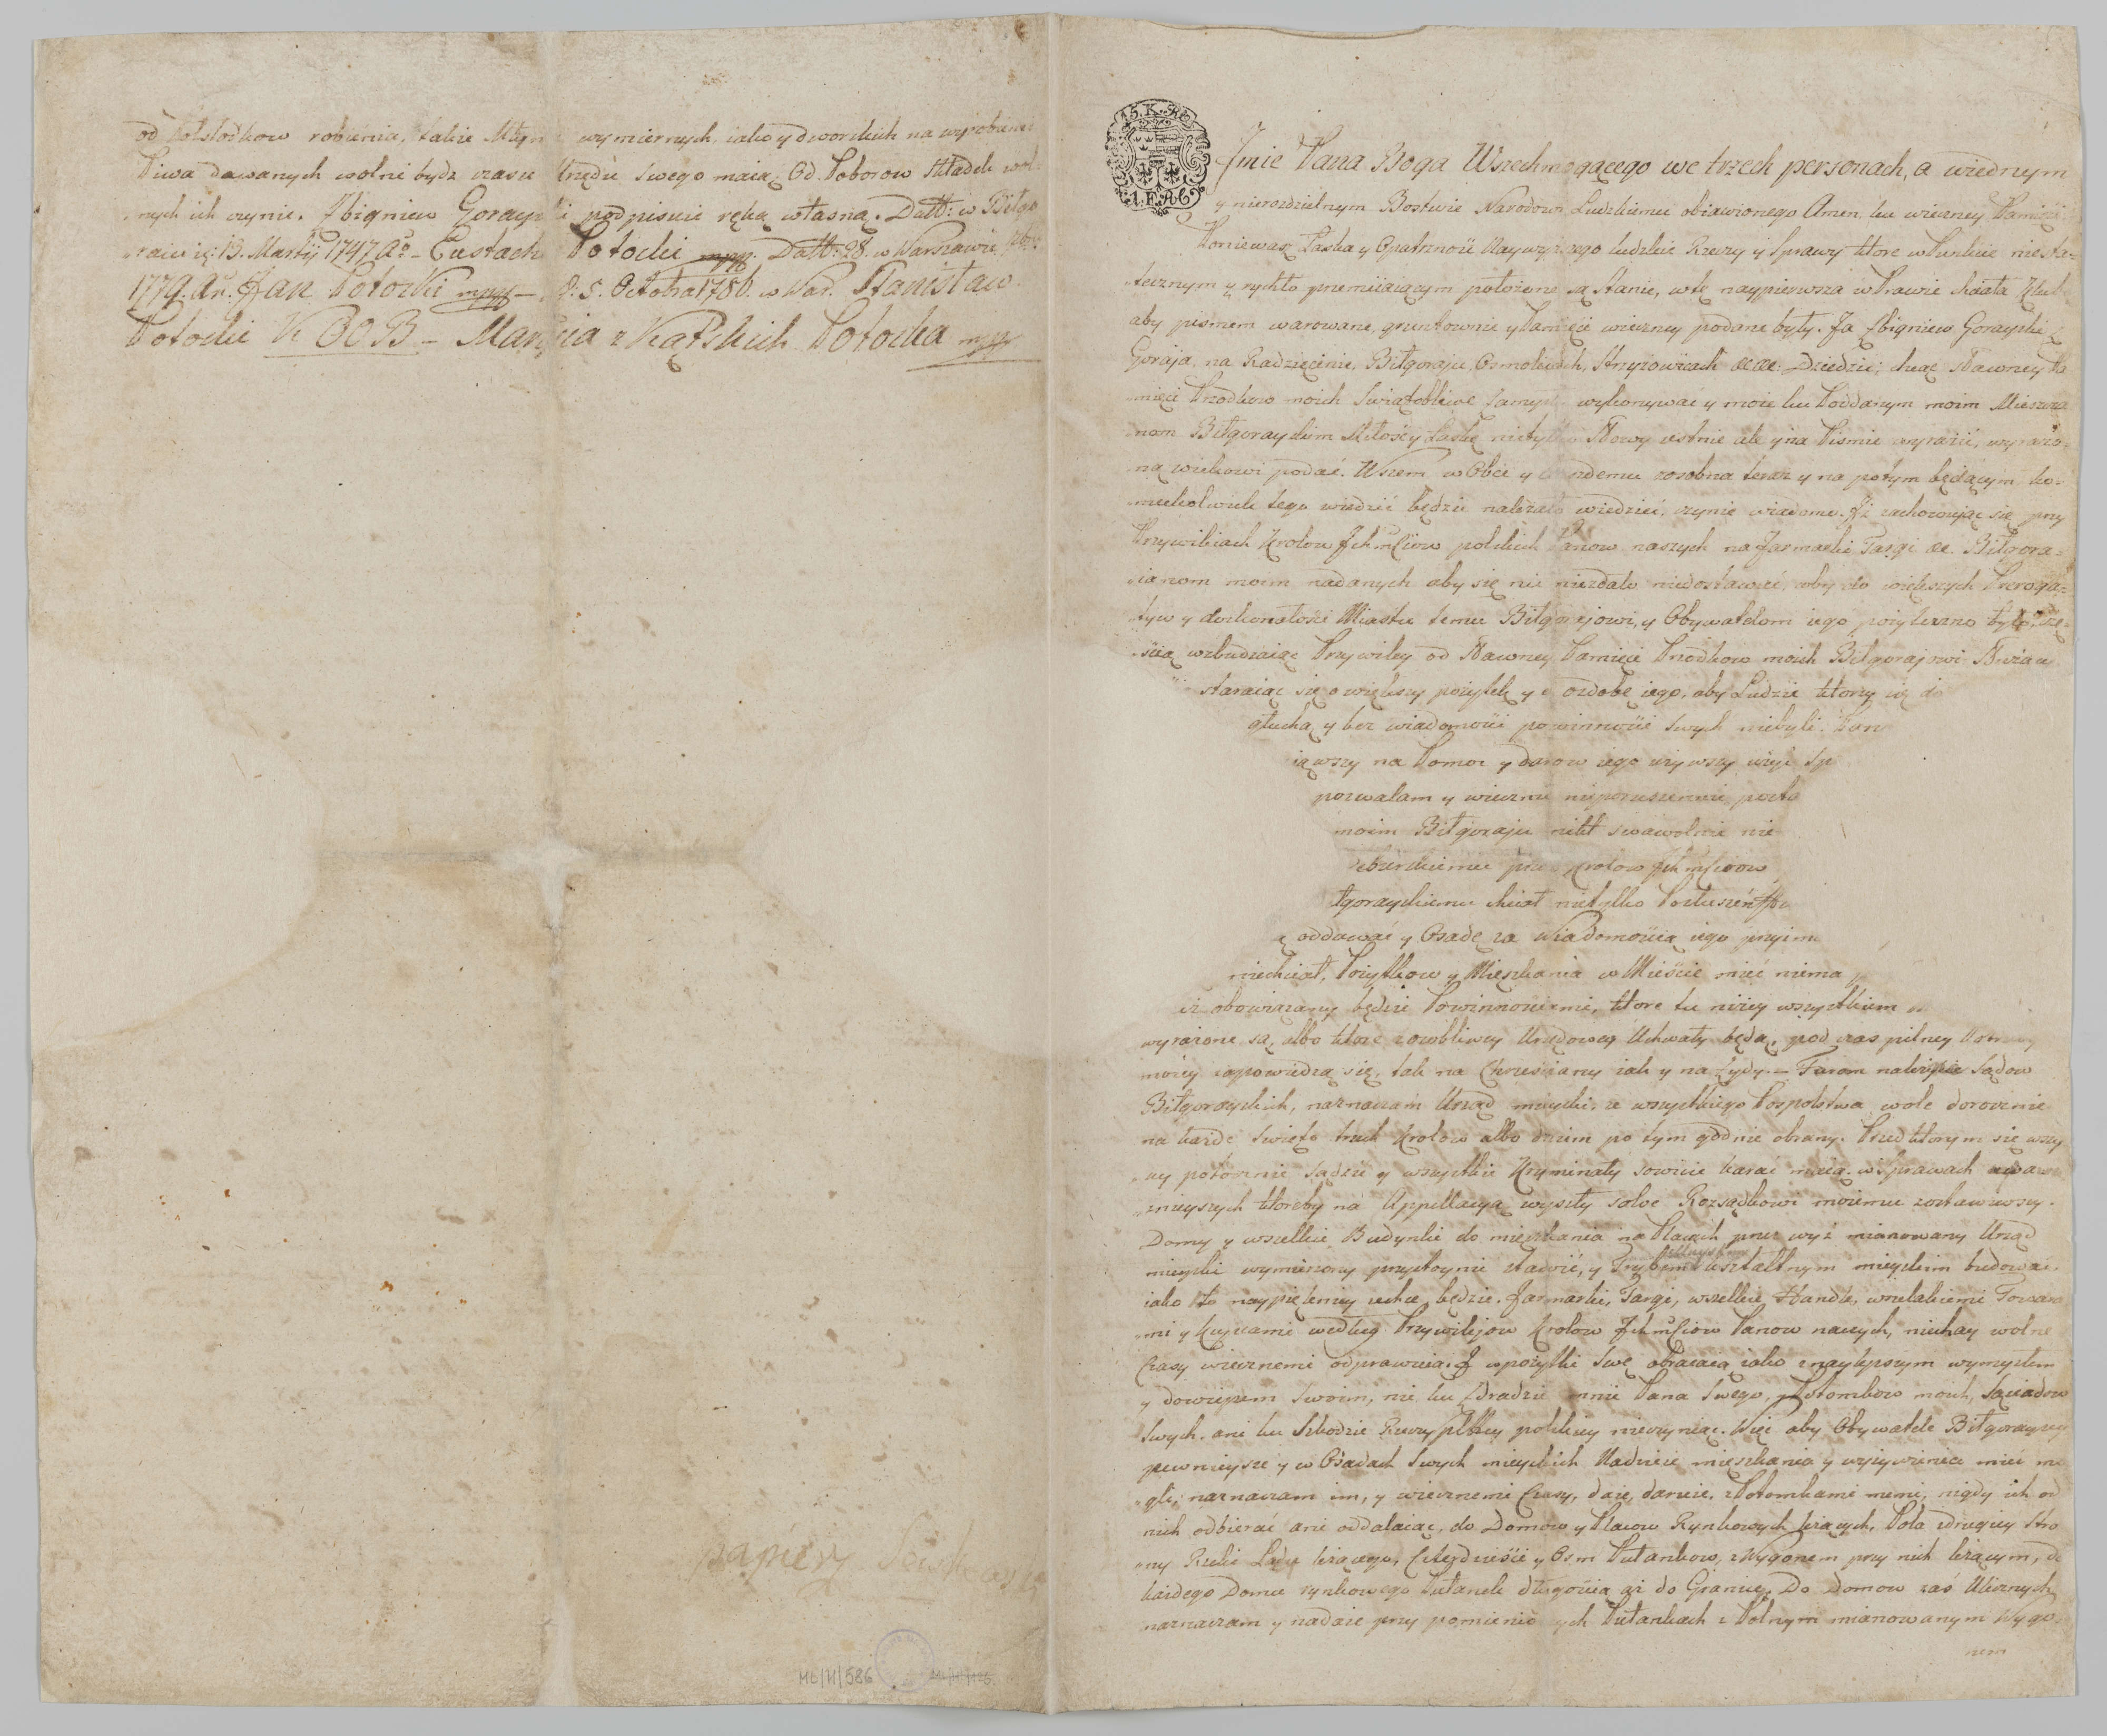 od Połslodkow robienia, takze Młyn wymiernych, iako y dworskich na wyrobienie
Piwa dawanych wolni bydz czasu Urzędu swego maią; Od Poborow Składek wol
nych ich czynie. Zbigniew Gorayski podpisuie ręką własną. Datt: w Biłgo
raiu 13. Martij 1747 Ao. Eustach Potocki mpp. Datt: 28. w Warszawie
1779. An. Jan Potocki mpp. D: 5. Octobra 1786. w War. Stanisław
Potocki K B O B – Maryja z Kątskich Potocka mpp
papiery
ML/H/586
15.K.R
I.F.R
Jmie Pana Boga Wszechmogącego we trzech personach, a wiednym
y nierozdzielnym Bostwie Narodowi Ludzkiemu obiawionego Amen. ku wieczney Pamięci
Poniewasz Łaska y Opatrznosć Naywyszego ludzkie Rzeczy y Sprawy ktore w Punkcie niesta-
tecznym y rychło przemiiaiącym położone są stanie, w tę naypierwsza w Prawie chciała
aby pismem warowane, gruntownie y Pamięci wieczney podane były. Ja Zbigniew Gorayski z
Goraja, na Radzięcinie, Biłgoraju, Osmolicach, Strzyżowicach &c &c: Dziedzic; chcąc Sławney Pa
mięci Przodkow moich Swiątobliwe wykonywać y moię ku Poddanym moim Mieszcza
nom Biłgorayskim Miłość y Łaskę nietylko Słowy ustnie ale y na Pismie wyrazić, wyrażo-
ną wiekowi podać. Wszem w Obec y każdemu zosobna teraz y na potym będącym ko-
mukolwiek tego wiedzieć będzie należało wiedzieć, czynię wiadomo. Iż zachowując się przy
Przywileiach Krolow Jchmciow polskich Panow naszych na Jarmarki Targi &c. Biłgora-
ianom moim nadanych aby się nic niezdało niedostawać, coby do większych Preroga-
tyw y doskonałosci Miastu temu Biłgorajowi, y Obywatelom iego pożyteczno było, czę-
scią wzbudzaiąc Przywiley od Sławney Pamięci Przodkow moich Biłgorajowi
staraiąc się o większy pożytek y ozdobę iego, aby Ludzie ktorzy się do
głuchą y bez wiadomosci powinnosci swych niebyli.
iąwszy na Pomoc y darow iego używszy
pozwalam y wiecznie nieporuszenie
moim Biłgoraju nikt swawolnie nie
przez Krolow Jchmciow
łgorayskiemu chciał nietylko Posłuszeństwo
oddawać y Osadę za Wiadomoscią iego przyim
niechciał, Pożytkow y Mieszkania w Miescie miec niema
iż obowiązany będzie Powinnosciami, ktore tu niżey wszystkiem
wyrażone są, albo ktore zosobliwey Urzędowey Uchwały będą, pod czas pilney
mocey zapowiedzą się, tak na Chrzesciany iak y na Żydy. – Forom należyte Sądow
Biłgorayskich, naznaczam Urząd mieyski, ze wszystkiego Pospolstwa wole dorocznie
na każde Święto trzech Krolow albo dniem po tym godnie obrany. Przed ktorym się wszy
cy potocznie sądzić y wszystkie Kryminały sowicie karać maią. w Sprawach
znieyszych ktoreby na Appellacyą wyszły salve Rozsądkowi moiemu zostawiwszy.
Domy y wszelkie Budynki do mięszkania na Placach przez wyż mianowany Urząd
mieyski wymierzony przystoynie stawić, y Trybem kształtnym mieyskim budować,
iako to naypiękniey uchce będzie. Jarmarki, Targi, wszelkie Handle, wszelakiemi Towara
mi y Kupcami według Przywilejow Krolow Jchmciow Panow naszych, niechay wolne
Czasy wiecznemi odprawuią. J w pożytki swę obracaią iako z naylepszym wymysłem
y dowcipem swoim, nie ku Zdradzie mnie Pana swego, y Potomkow moich, Sąsiadow
swych, ani ku Szkodzie Rzeczypltey polskiey nieczyniąc. Więc aby Obywatele Biłgorayscy
pewnieysze y w Osadach swych mieyskich Nadzieie mięszkania y wyżywienia mieć mo
gli, naznaczam im, y wiecznemi Czasy, daię, daruię, z Potomkami memi, nigdy ich od
nich odbierać ani oddalaiąc, do Domow y Placow Rynkowych leżących, Pola zdrugiey stro
ny Rzeki Lady leżącego, Czterdziesci y Osm Pułankow, z Wygonem przy nich leżącym, do
każdego Domu rynkowego Pułanek długoscią aż do Granicy. Do Domow zas Ulicznych
naznaczam y nadaie przy pomienionych Pułankach z Polnym mianowanym Wygo-
nem